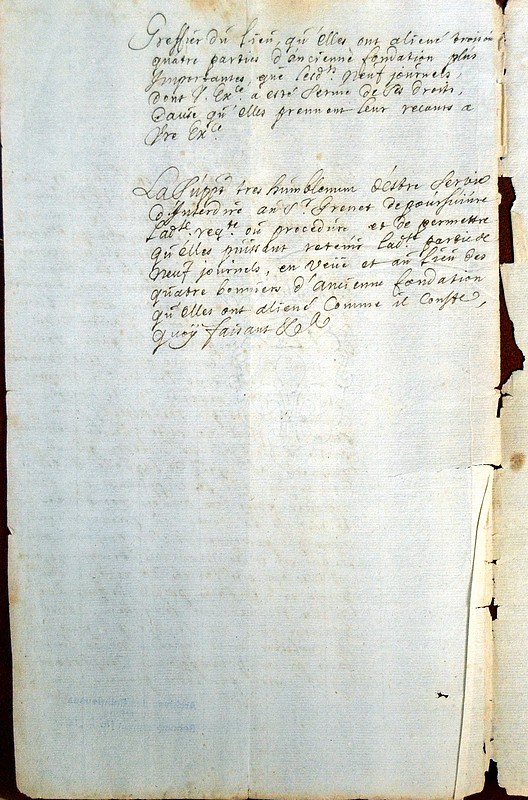 Greffier du lieu, qu'elles ont aliené trois ou
quatre parties d'ancienne fondation plus
Importantes, que lesd.ts neuf journels
dont V. Ex.ce a esté servie de
Cause qu'elles prennent leur recours a
Vre Ex.ce
La Supp.t tres humblement d'estre servie
d'Interdire au S.r Grenet de poursuivre
lad.te req.te ou procedure, et de permettre
qu'elles puissant retenir lad.te partie de
neuf journels, en veüe et au lieu des
quatre bonniers d'ancienne fondation
qu'elles ont aliené Comme il Conste,
Quoÿ faisant &.a